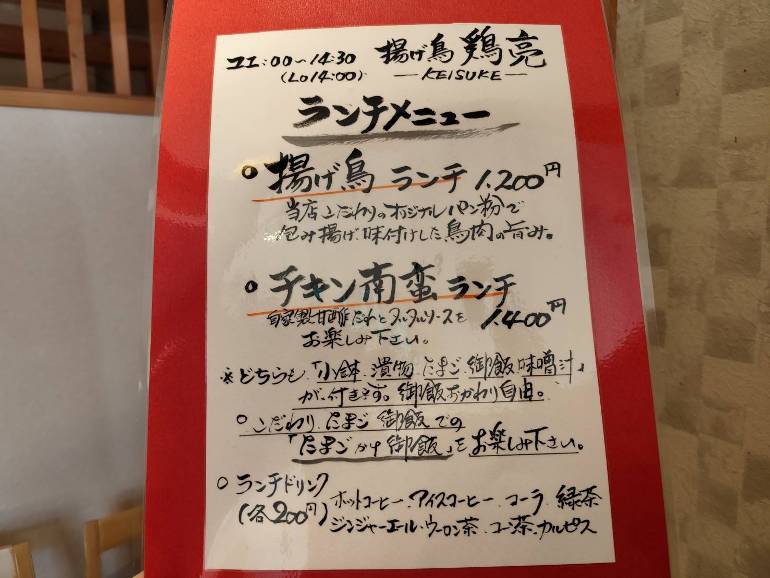 11:00〜14:30 揚げ鳥 鶏亮
(Lo14:00) —KEISUKE—
ランチメニュー
○揚げ鳥 ランチ 1.200円
当店こだわりのオリジナルパン粉で
包み揚げ、味付けした鳥肉の旨み。
○チキン南蛮 ランチ
自家製甘酢たれとタルタルソースを 1.400円
お楽しみ下さい。
※どちらも「小鉢、漬物、たまご、御飯、味噌汁」
が付きます。御飯おかわり自由。
○こだわり、たまご、御飯での
「たまごかけ御飯」をお楽しみ下さい。
○ランチドリンク
(各200円) ホットコーヒー・アイスコーヒー・コーラ・緑茶
ジンジャーエール・ウーロン茶・コーン茶・カルピス